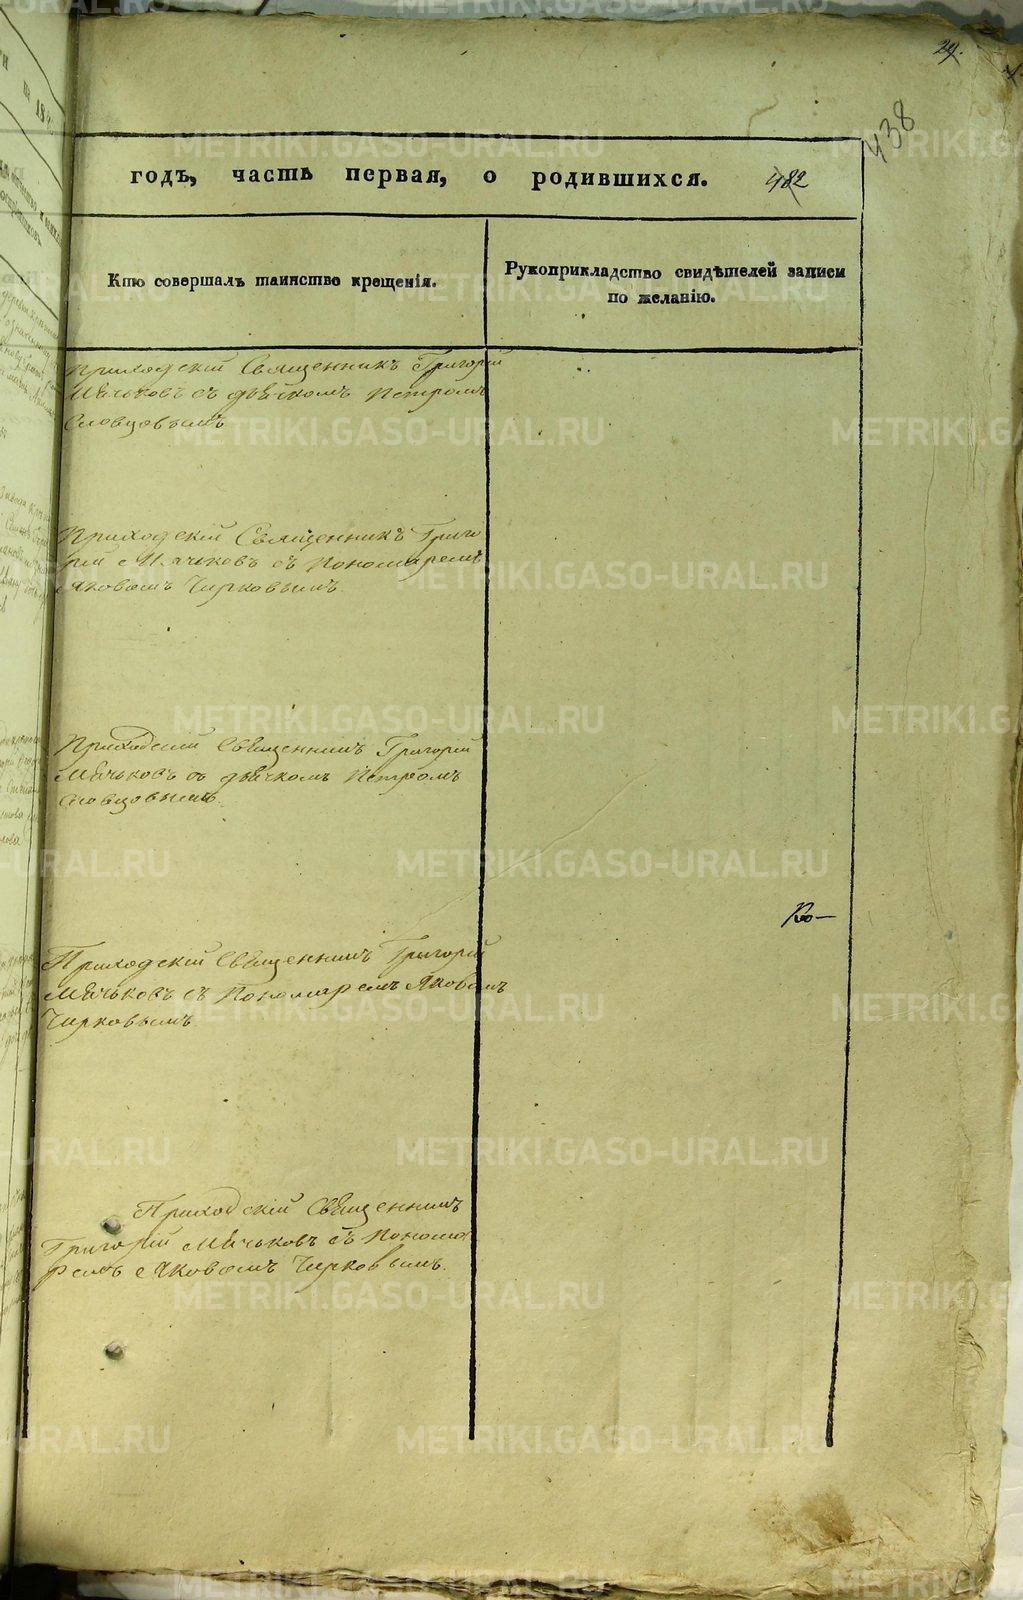 29.
438
годъ, часть первая, о родившихся. 482
Кто совершалъ таинство крещенія.
Рукоприкладство свидѣтелей записи
по желанію.
Приходскій Священникъ Григорій
Мячьковъ съ дьячкомъ Петромъ
Словцовымъ
Приходскій Священникъ Григо
рій Мячьковъ съ Пономаремъ
Яковомъ Чирковымъ.
Приходскій Священникъ Григорій
Мячьковъ съ дьячкомъ Петромъ
Словцовымъ.
По—
Приходскій Священникъ Григорій
Мячьковъ съ Пономаремъ Яковомъ
Чирковымъ
Приходскій Священникъ
Григорій Мячьковъ съ Понома
ремъ Яковомъ Чирковымъ.
METRIKI.GASO-URAL.RU